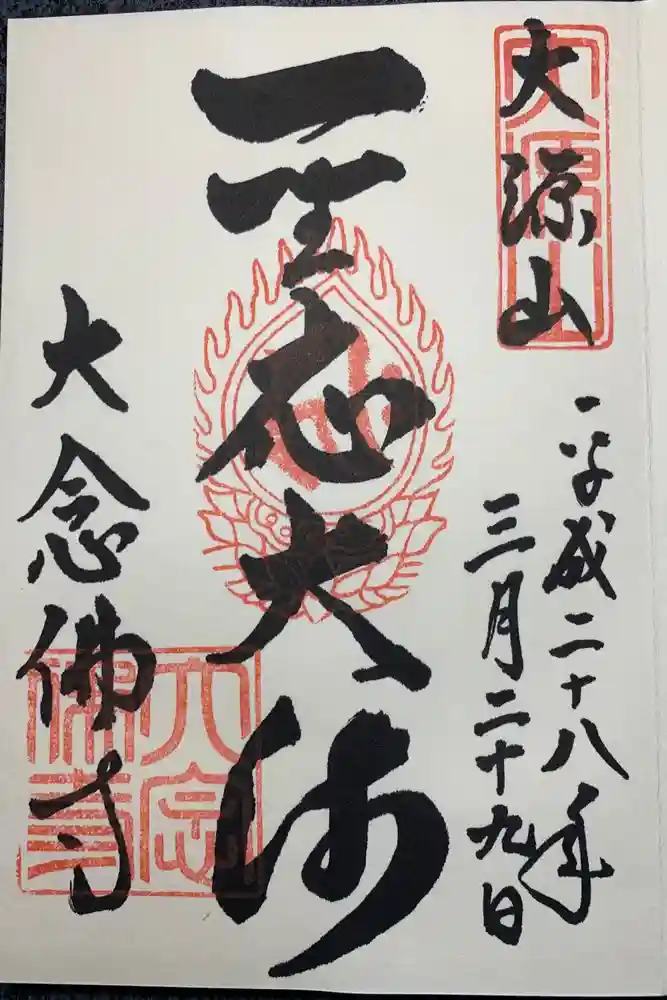 大源山
大源山
平成二十八年
三月二十九日
聖応大師
大念佛寺
大念
佛寺